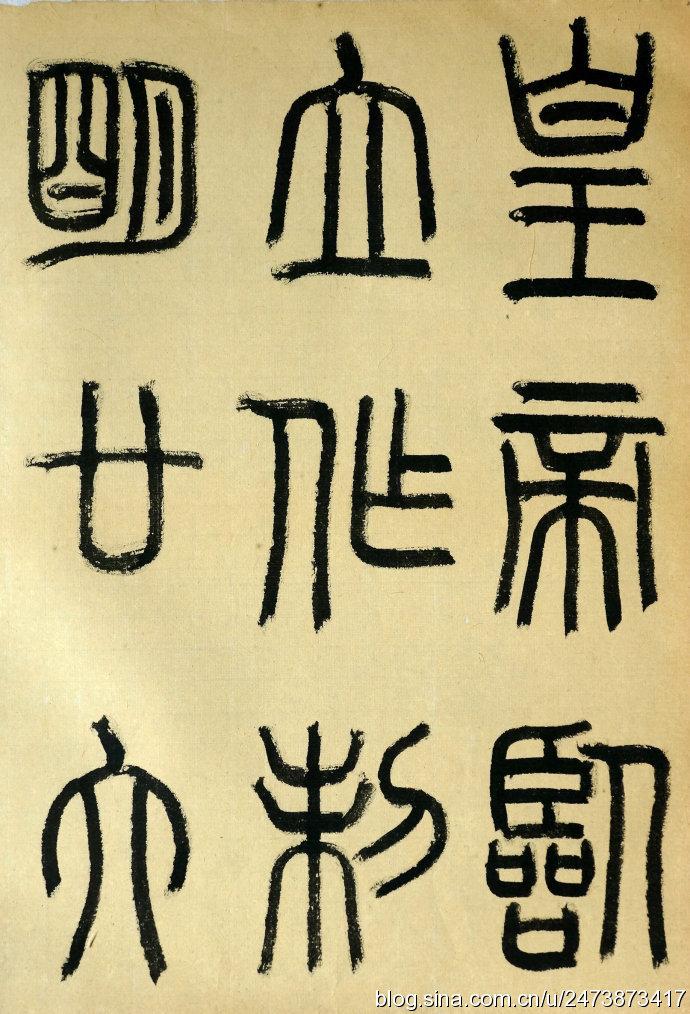 皇帝臨
立作制
明廿六
blog.sina.com.cn/u/2473873417